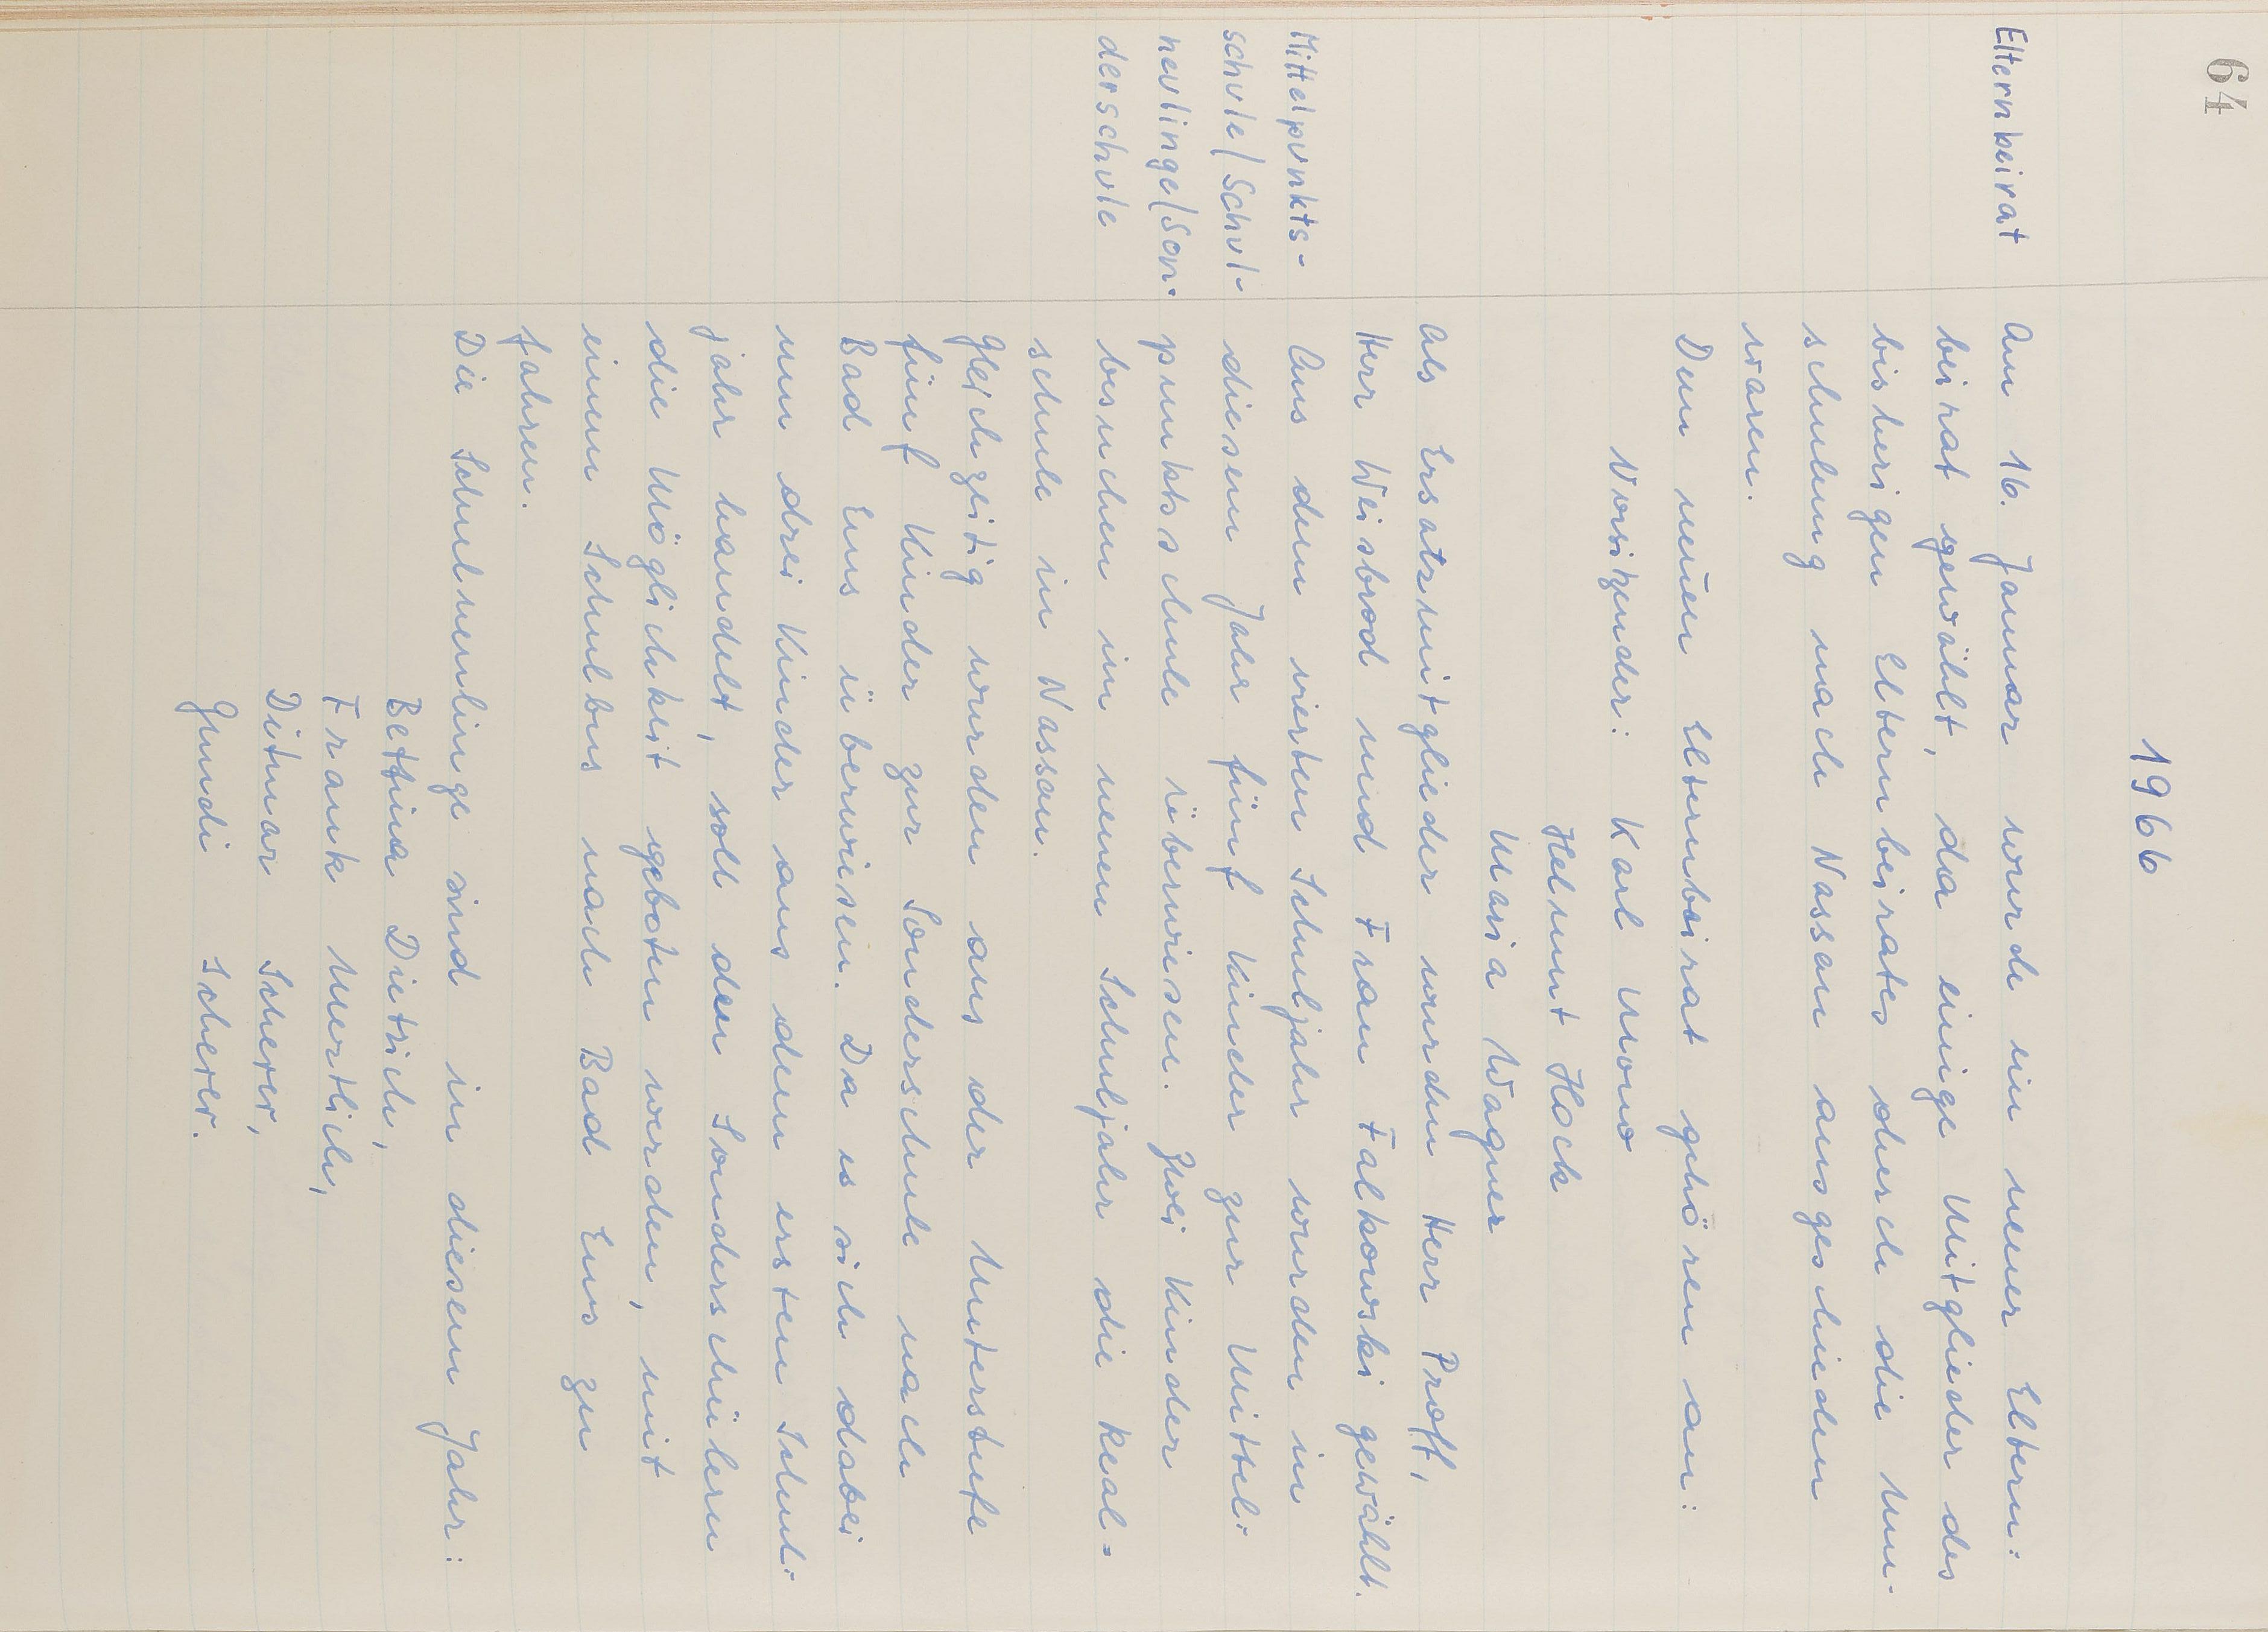 64
1966
Elternbeirat
Am 16. Januar wurde ein neuer Eltern-
beirat gewählt, da einige Mitglieder des
bisherigen Elternbeirates durch die Um-
schulung nach Nassau ausgeschieden
waren.
Dem neuen Elternbeirat gehören an:
Vorsitzender: Karl Mono
Helmut Hock
Maria Wagner
Als Ersatzmitglieder wurden Herr Proff,
Herr Weisbrod und Frau Falkowski gewählt.
Mittelpunkts-
schule/Schul-
neulinge/Son-
derschule
Aus dem vierten Schuljahr wurden in
diesem Jahr fünf Kinder zur Mittel-
punktsschule überwiesen. Zwei Kinder
besuchen im neuen Schuljahr die Real-
schule in Nassau.
Gleichzeitig wurden aus der Unterstufe
fünf Kinder zur Sonderschule nach
Bad Ems überwiesen. Da es sich dabei
um drei Kinder aus dem ersten Schul-
jahr handelt, soll den Sonderschülern
die Möglichkeit geboten werden, mit
einem Schulbus nach Bad Ems zu
fahren.
Die Schulneulinge sind in diesem Jahr:
Bettina Dietrich,
Frank Mertlich,
Ditmar Scherer,
Gundi Scherer.